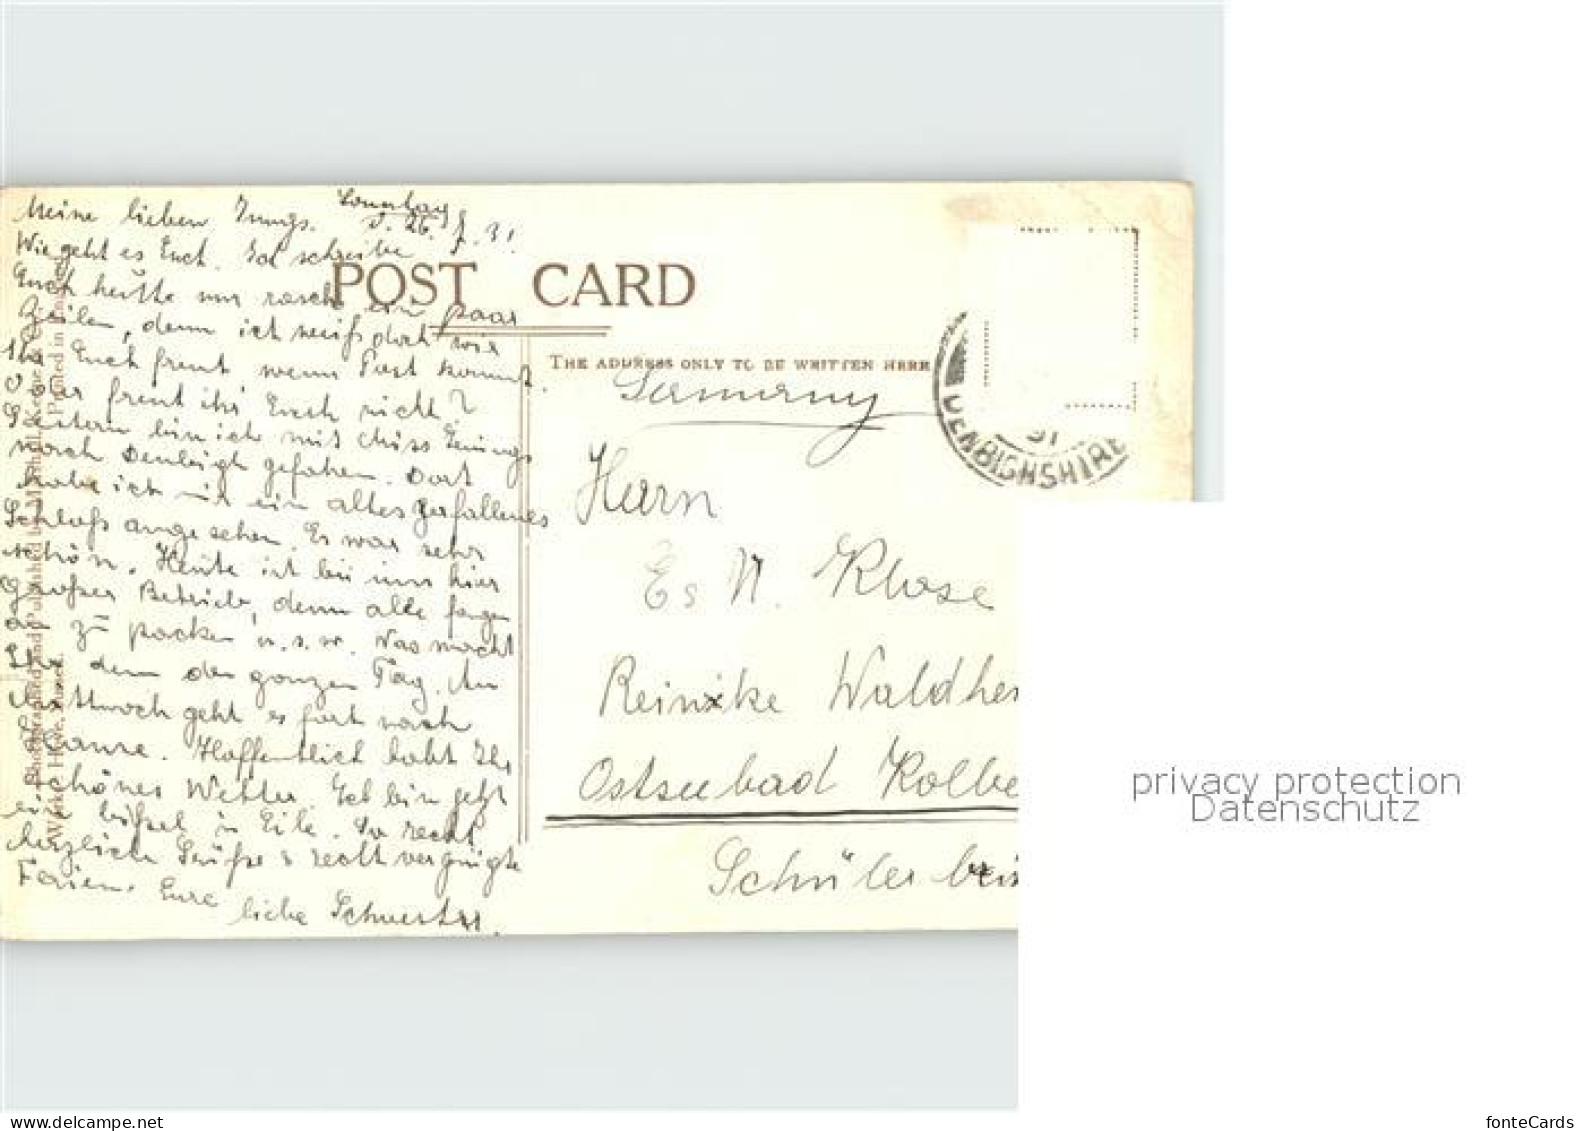 Meine lieben Jungs. Sonntag
d. 26. 7. 31.
Wie geht es Euch. Ich schreibe
Euch heute nur rasch ein paar
Zeilen, denn ich weiß doch wie
Ihr Euch freut wenn Post kommt.
Oder freut ihr Euch nicht?
Gestern bin ich mit Miss
nach Denbigh gefahren. Dort
habe ich mir ein altes zerfallenes
Schloß angesehen. Es war sehr
schön. Heute ist bei uns hier
großer Betrieb, denn alle fangen
an zu packen u.s.w. Was macht
Ihr denn den ganzen Tag. Am
Mittwoch geht es fort nach
Hause. Hoffentlich habt Ihr
schönes Wetter. Ich bin jetzt
ein bißsel in Eile. So recht
herzliche Grüße & recht vergnügte
Ferien. Eure
liebe Schwester.
POST CARD
THE ADDRESS ONLY TO BE WRITTEN HERE
Germany
Herrn
Es N. Klose
Reinike Waldhe
Ostseebad Kolbe
Schüler
DENBIGHSHIRE
31
Photographed and Published by Marshall, Keene & Co.
Printed in
Hove, Sussex.
privacy protection
Datenschutz
www.delcampe.net
fonteCards